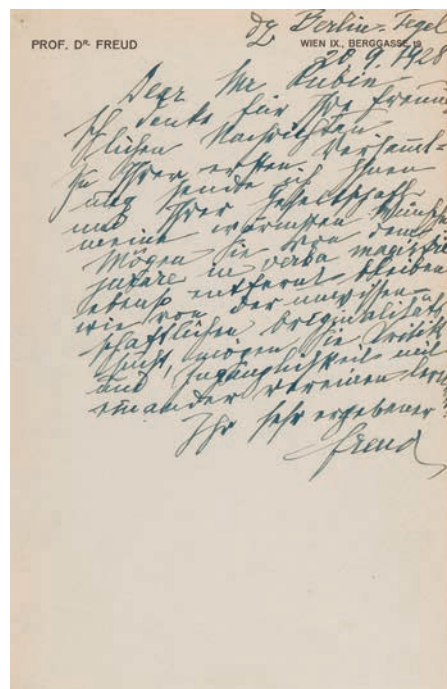 PROF. DR. FREUD
WIEN IX., BERGGASSE 19
dz Berlin-Tegel
20.9.1928
Dear Mr Rubin
Ich danke für Ihre freund-
lichen Nachrichten
Zu Ihrer ersten Versamml-
ung sende ich Ihnen
und Ihrer Gesellschaft
meine wärmsten Wünsche
Mögen Sie von dem
jurare in verba magistri
ebenso entfernt bleiben
wie von der unwissen-
schaftlichen Originalitäts
sucht, mögen Sie Kritik
und Zugänglichkeit mit
einander vereinen
Ihr sehr ergebener
Freud